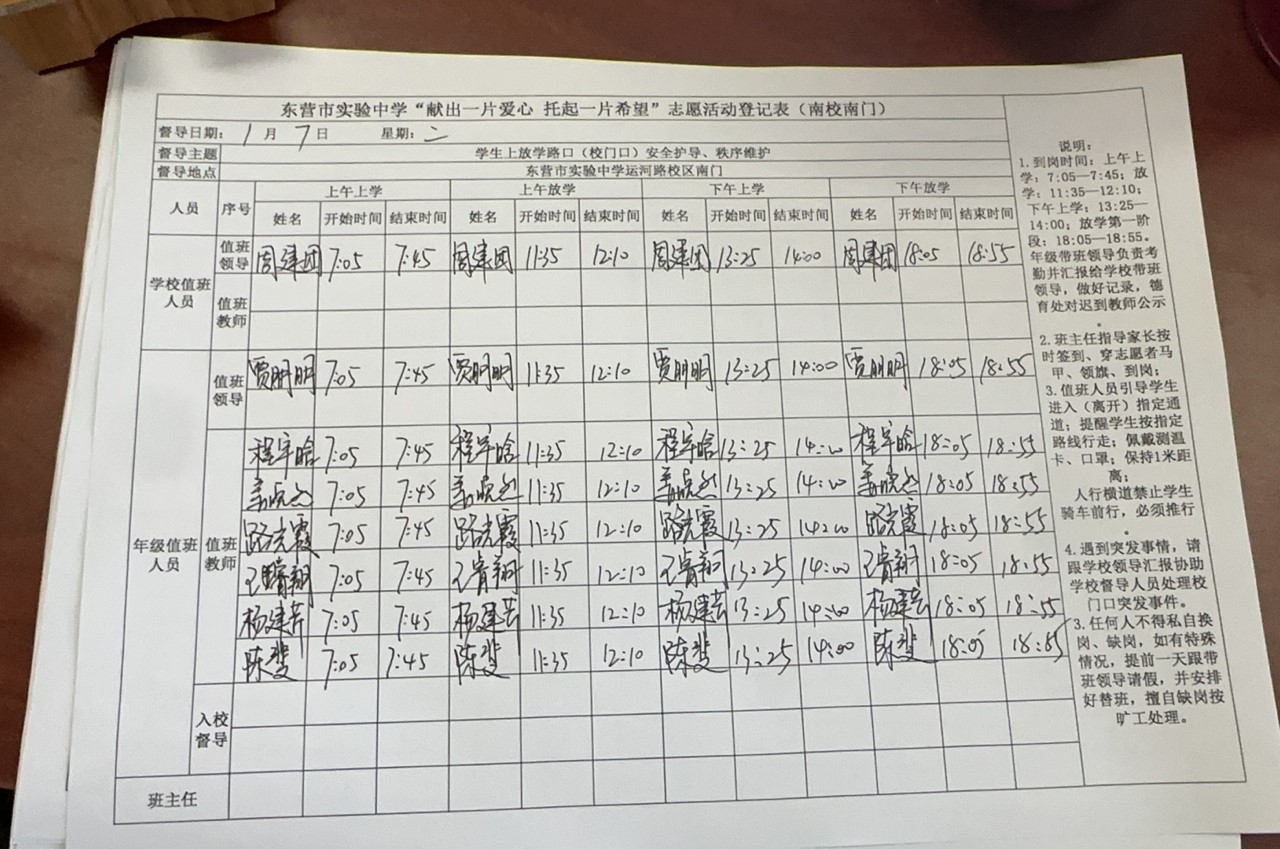 东营市实验中学“献出一片爱心 托起一片希望”志愿活动登记表（南校南门）
督导日期： 1 月 7 日 星期：二
督导主题 学生上放学路口（校门口）安全护导、秩序维护
督导地点 东营市实验中学运河路校区南门
人员 序号 上午上学 上午放学 下午上学 下午放学
姓名 开始时间 结束时间 姓名 开始时间 结束时间 姓名 开始时间 结束时间 姓名 开始时间 结束时间
学校值班人员
值班领导 周建团 7:05 7:45 周建团 11:35 12:10 周建团 13:25 14:00 周建团 18:05 18:55
值班教师
年级值班人员
值班领导 贾明明 7:05 7:45 贾明明 11:35 12:10 贾明明 13:25 14:00 贾明明 18:05 18:55
值班教师
7:05 7:45 11:35 12:10 13:25 14:00 18:05 18:55
7:05 7:45 11:35 12:10 13:25 14:00 18:05 18:55
路光霞 7:05 7:45 路光霞 11:35 12:10 路光霞 13:25 14:00 路光霞 18:05 18:55
7:05 7:45 11:35 12:10 13:25 14:00 18:05 18:55
杨建芳 7:05 7:45 杨建芳 11:35 12:10 杨建芳 13:25 14:00 杨建芳 18:05 18:55
陈斐 7:05 7:45 陈斐 11:35 12:10 陈斐 13:25 14:00 陈斐 18:05 18:55
入校督导
班主任
说明：
1.到岗时间：上午上
学：7:05—7:45；放
学：11:35—12:10；
下午上学：13:25—
14:00；放学第一阶
段：18:05—18:55。
年级带班领导负责考
勤并汇报给学校带班
领导，做好记录，德
育处对迟到教师公示
。
2.班主任指导家长按
时签到、穿志愿者马
甲、领旗、到岗；
3.值班人员引导学生
进入（离开）指定通
道；提醒学生按指定
路线行走；佩戴测温
卡、口罩；保持1米距
离；
人行横道禁止学生
骑车前行，必须推行
。
4.遇到突发事情，请
跟学校领导汇报协助
学校督导人员处理校
门口突发事件。
3.任何人不得私自换
岗、缺岗，如有特殊
情况，提前一天跟带
班领导请假，并安排
好替班，擅自缺岗按
旷工处理。